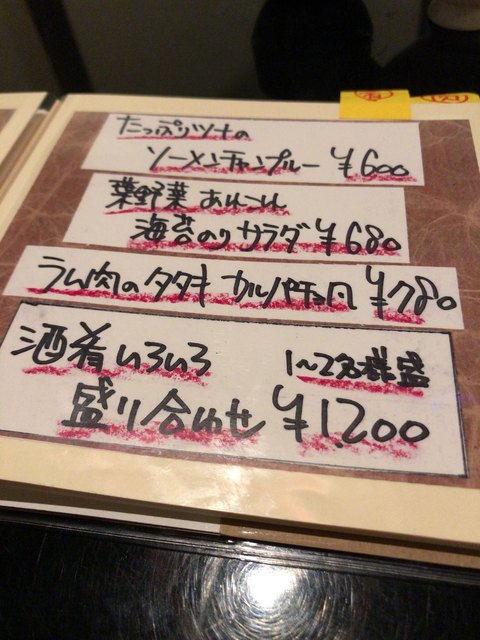 たっぷりツナの
ソーメンチャンプルー ¥600
葉野菜あれこれ
海苔のりサラダ ¥680
ラム肉のタタキ カルパッチョ風 ¥780
酒肴いろいろ 1〜2名様盛
盛り合わせ ¥1,200